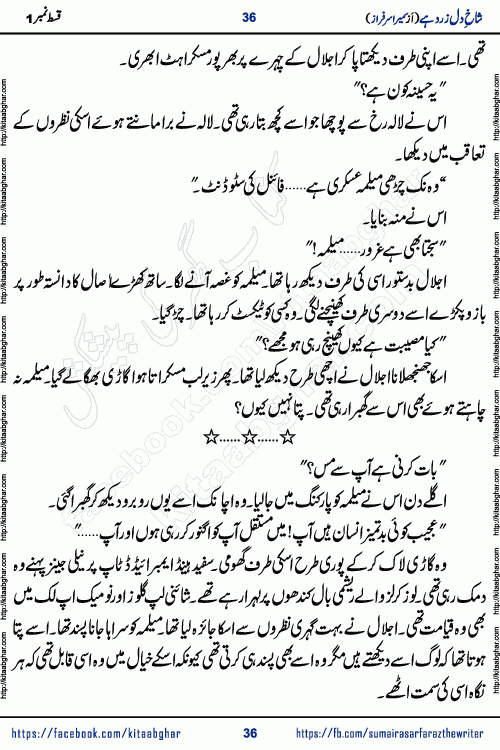 شاخِ دل زرد ہے (از سمیرا سرفراز) 36 قسط نمبر 1
تھی۔ اسے اپنی طرف دیکھتا پا کر اجلال کے چہرے پر بھرپور مسکراہٹ ابھری۔
"یہ حسینہ کون ہے؟"
اس نے لالہ رخ سے پوچھا جو اسے کچھ بتا رہی تھی۔ لالہ نے برا مانتے ہوئے اسکی نظروں کے
تعاقب میں دیکھا۔
"وہ نک چڑھی میلمہ عسکری ہے......فائنل کی سٹوڈنٹ۔"
اس نے منہ بنایا۔
"سجتا بھی ہے غرور......میلمہ!"
اجلال بدستور اسی کی طرف دیکھ رہا تھا۔ میلمہ کو غصہ آنے لگا۔ ساتھ کھڑے اصال کا دانستہ طور پر
بازو پکڑے اسے دوسری طرف کھینچنے لگی۔ وہ کسی کو ٹیکسٹ کر رہا تھا۔ چڑ گیا۔
"کیا مصیبت ہے کیوں کھینچ رہی ہو مجھے؟"
اسکا جھنجھلانا اجلال نے اچھی طرح دیکھ لیا تھا۔ پھر زیرلب مسکراتا ہوا گاڑی بھگا لے گیا۔ میلمہ نہ
چاہتے ہوئے بھی اس سے گھبرا رہی تھی۔ پتا نہیں کیوں؟
☆......☆......☆
"بات کرنی ہے آپ سے مس؟"
اگلے دن اس نے میلمہ کو پارکنگ میں جالیا۔ وہ اچانک اسے یوں روبرو دیکھ کر گھبرا گئی۔
"عجیب کوئی بدتمیز انسان ہیں آپ! میں مستقل آپ کو اگنور کر رہی ہوں اور آپ......"
وہ گاڑی لاک کر کے پوری طرح اسکی طرف گھومی۔ سفید ہینڈ ایمبرائیڈڈ ٹاپ پر نیلی جینز پہنے وہ
دمک رہی تھی۔ لوز کرلز والے ریشمی بال کندھوں پر لہرا رہے تھے۔ شائنی لپ گلوز اور نو میک اپ لک میں
بھی وہ قیامت تھی۔ اجلال نے بہت گہری نظروں سے اسکا جائزہ لیا تھا۔ میلمہ کو سراہا جانا پسند تھا۔ اسے پتا
ہوتا تھا کہ لوگ اسے دیکھتے ہیں مگر وہ اسے بھی پسند ہی کرتی تھی کیونکہ اسکے خیال میں وہ اسی قابل تھی کہ ہر
نگاہ اسی کی سمت اٹھے۔
https://facebook.com/kitaabghar 36 https://fb.com/sumairasarfarazthewriter
http://kitaabghar.com